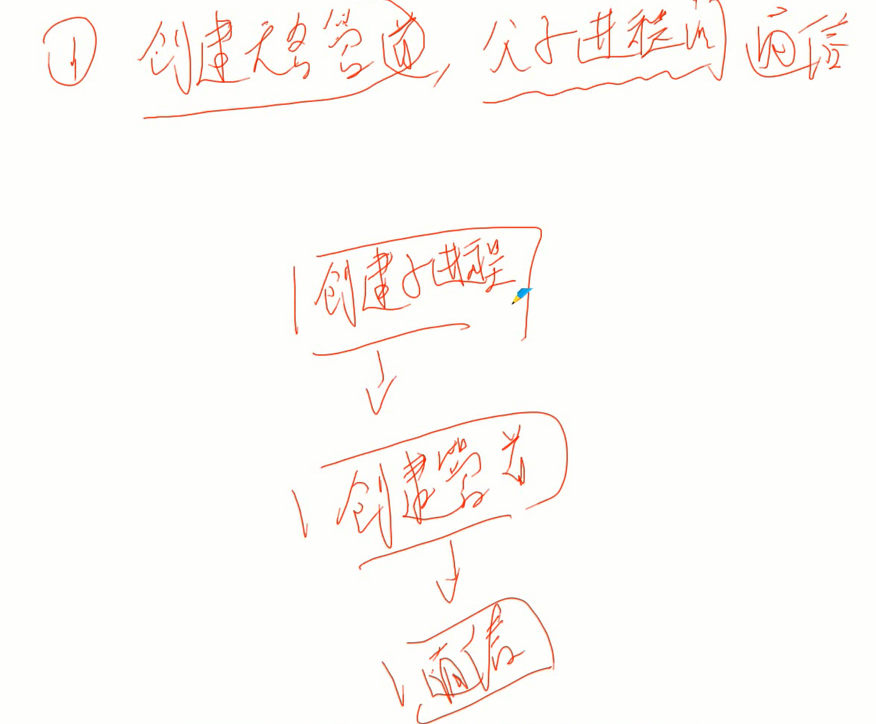 ① 创建无名管道,父子进程间通信
创建子进程
创建管道
通信